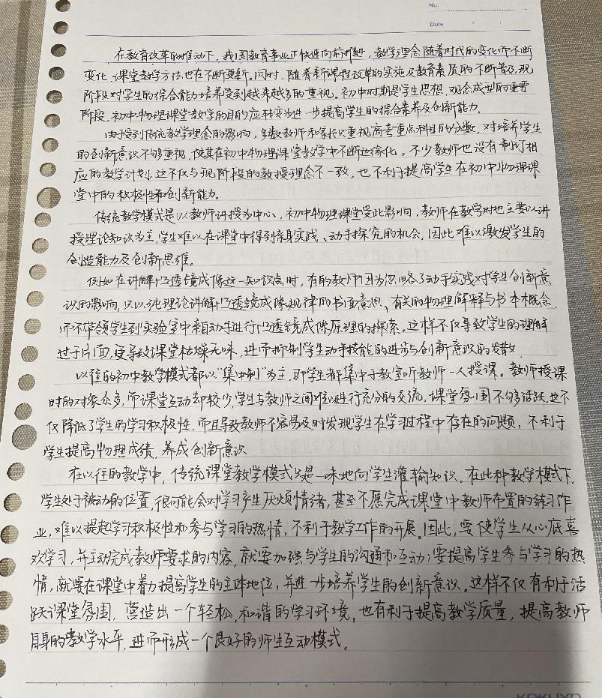 No.
Date
在教育改革的推动下，我国教育事业正快速向前迈进，教学理念随着时代的变化而不断
变化，课堂教学方法也在不断更新。同时，随着新课程改革的实施及教育素质的不断普及，现
阶段对学生的综合能力培养受到越来越多的重视，初中时期是学生思想、观念成型的重要
阶段，初中物理课堂教学的目的应转变为进一步提高学生的综合素养及创新能力。
由于受到传统教学理念的影响，多数教师和家长只重视高考重点科目的分数，对培养学生
的创新意识不够重视，使其在初中物理课堂教学中不断边缘化，不少教师也没有制订相
应的教学计划，这不仅与现阶段的教授理念不一致，也不利于提高学生在初中物理课
堂中的积极性和创新能力。
传统教学模式是以教师讲授为中心，初中物理课堂受此影响，教师在教学时也主要以讲
授理论知识为主，学生难以在课堂中得到亲身实践、动手探究的机会，因此难以激发学生的
创造能力及创新思维。
例如在讲解凸透镜成像这一知识点时，有的教师因为忽略了动手实践对学生创新意
识的影响，只以纯理论讲解凸透镜成像规律的书面意思、有关的物理解释与书本概念
而不带领学生到实验室中亲自动手进行凸透镜成像原理的探索。这样不仅导致学生的理解
过于片面，更导致课堂枯燥无味，进而抑制学生动手技能的进步与创新意识的发散。
以往的初中教学模式都以“集中制”为主，即学生都集中于教室听教师一人授课，教师授课
时的对象众多，而课堂互动却较少，学生与教师之间难以进行充分的交流，课堂氛围不够活跃，这不
仅降低了学生的学习积极性，而且导致教师不容易及时发现学生在学习过程中存在的问题，不利于
学生提高物理成绩、养成创新意识。
在以往的教学中，传统课堂教学模式只是一味地向学生灌输知识。在此种教学模式下，
学生处于被动的位置，很可能会对学习产生厌烦情绪，甚至不愿完成课堂中教师布置的练习作
业，难以提起学习积极性和参与学习的热情，不利于教学工作的开展。因此，要使学生从心底喜
欢学习，并主动完成教师要求的内容，就要加强与学生的沟通和互动；要提高学生参与学习的热
情，就要在课堂中着力提高学生的主体地位，并进一步培养学生的创新意识。这样不仅有利于活
跃课堂氛围，营造出一个轻松、和谐的学习环境，也有利于提高教学质量，提高教师
自身的教学水平，进而形成一个良好的师生互动模式。
KOKUYO